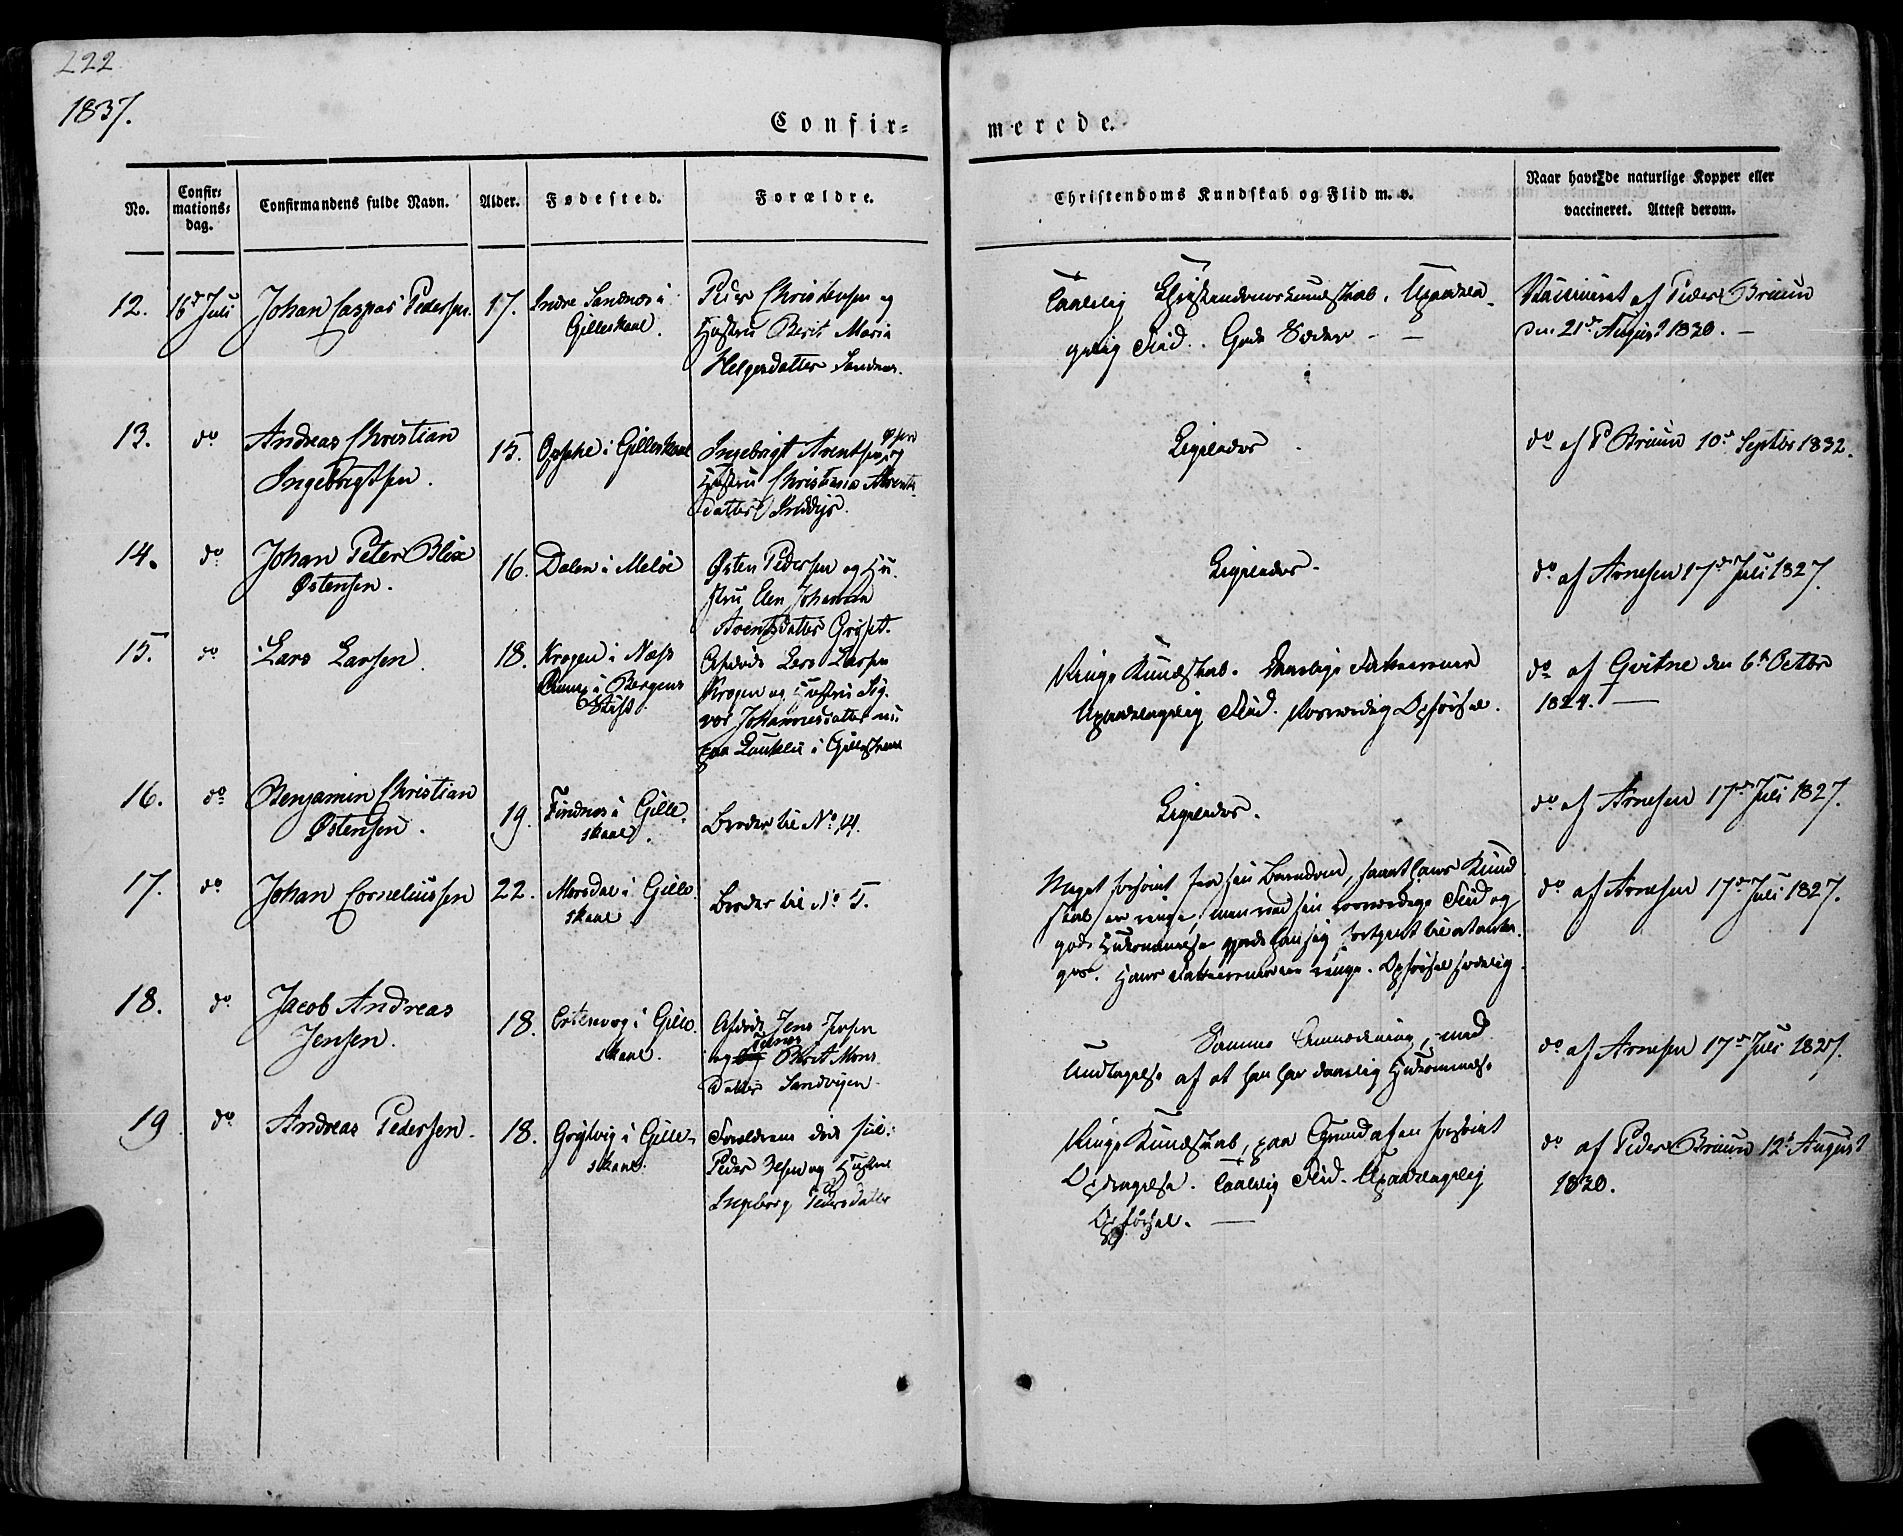 222
1837.
Confir=
merede.
No.
Confir=
mations=
dag.
Confirmandens fulde Navn.
Alder.
Fødested.
Forældre.
Christendoms Kundskab og Flid m. v.
Naar havt de naturlige Kopper eller
vaccineret. Attest derom.
12.
16d Juli
Johan Caspar Pedersen.
17.
Indre Sandnes i
Gilleskaal.
Peder Christensen og
Hustru Berit Maria
Helgesdatter Sandnes.
Taalelig Christendomskundskab. Upaakla
gelig Flid. Gode Sæder - -
Vaccineret af Peder Bruun
den 21de August 1830. -
13.
do
Andreas Christian
Ingebrigtsen.
15.
i Gilleskaal
Ingebrigt Arentsen
og
Hustru Christiana Arents
datter
Ligeledes
do af P Bruun 10de Septbr 1832.
14.
do
Johan Peter Blix
Østensen.
16.
Dalen i Meløe
Østen Pedersen og Hu
stru Elen Johanna
Arentsdatter
Ligeledes.
do af Arnesen 17de Juli 1827.
15.
do
Lars Larsen.
18.
Krogen i Næss
i Bergens
Stift.
Afdøde Lars Larsen
Krogen og Hustru Sig
vor Johannesdatter nu
paa i Gilleskaal
Ringe Kundskab. Daarlige Naturevner
Upaaklagelig Flid. Sædelig Opførsel.
do af Qvitne den 6te Octbr
1824. -
16.
do
Benjamin Christian
Østensen.
19.
Findnes i Gille
skaal.
Broder til No 14.
Ligeledes.
do af Arnesen 17de Juli 1827.
17.
do
Johan Corneliussen
22.
Morsdal i Gille
skaal
Broder til No 5.
Meget forsømt fra sin Barndom, samt hans Kund
skab er ringe, men ved sin Flid og
god Hukommelse gjorde han sig fortjent til at anta
ges. Hans Naturevner ere ringe. Opførsel sædelig
do af Arnesen 17de Juli 1827.
18.
do
Jacob Andreas
Jensen.
18.
i Gille
skaal.
Afdøde Jens Jensen
og Berit Mons
Datter Sandvigen
Samme Anmærkning, med
Undtagelse af at han har daarlig Hukommelse
do af Arnesen 17de Juli 1827.
19
do
Andreas Pedersen.
18.
i Gille
skaal.
Forældrene døde
Peder Olsen og Hustru
Ingeborg Pedersdatter
Ringe Kundskab, paa Grund af en forsømt
Opdragelse. Taalelig Flid. Upaaklagelig
Opførsel. -
do af Peder Bruun 12te August
1830.